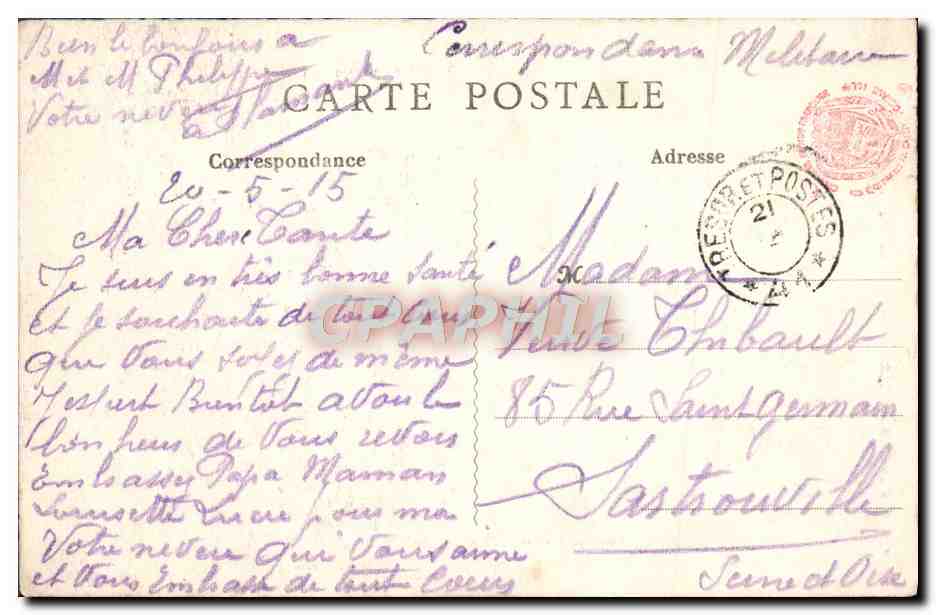 Bien le bonjours a
M et M Philippe
Votre neveu
Correspondance Militaire
CARTE POSTALE
Correspondance
Adresse
20-5-15
Ma Chere Tante
Je suis en très bonne santé
et je souhaite de tout cœur
que vous soyez de même
J'espert Bientôt avoir le
bonheur de vous revoir
Embrassez Papa Maman
Lousette Lucie pour moi
Votre neveu qui vous aime
et vous Embrasse de tout Coeur
TRESOR ET POSTES
21
* *
M
Madame
Veuve Thibault
85 Rue Saint germain
Sartrouville
Seine et Oise
CPAPHIL